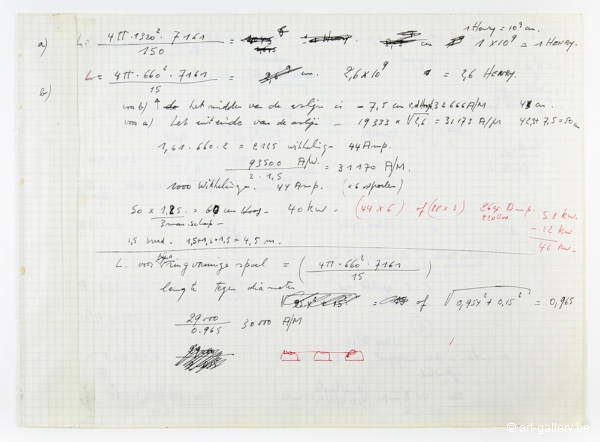 1 Henry = 10⁹ cm.
a) L = 4π · 1320² · 7161 / 150 = cm 1 × 10⁹ = 1 HENRY.
b) L = 4π · 660² · 7161 / 15 = cm. 2,6 × 10⁹ = 2,6 HENRY.
voor b) het midden van de is - 7,5 cm 32666 A/M cm.
voor a) het uiteinde van de - 19333 × √2,6 = 31173 A/M 42,5 + 7,5 = 50 cm
1,61 · 660 · 2 = 2125 wikkeling - 44 Amp.
93500 A/W. / 2 · 1,5 = 31170 A/M.
1000 Wikkelingen. 44 Amp. (× 6 spoelen)
50 × 1,25 = cm Hoog - 40 kw - (44 × 6) of (88 × 3) 264 Amp. 58 kw.
220 - 12 kw
1,5 breed. 1,5 + 1,5 + 1,5 = 4,5 m. 46 kw.
L. voor ringvormige spoel = ( 4π · 660² · 7161 / 15 )
lengte tegen diameter
= of √0,954² + 0,15² = 0,965
29000 / 0.965 30000 A/M
© art-gallery.be